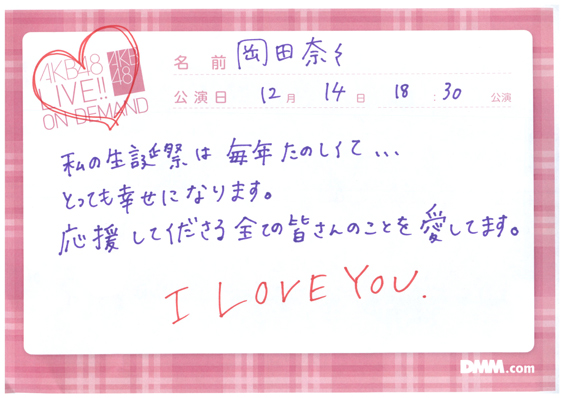 AKB48
LIVE!!
ON DEMAND
AKB
48
名前 岡田奈々
公演日 12月 14日 18:30 公演
私の生誕祭は毎年たのしくて...
とっても幸せになります。
応援してくださる全ての皆さんのことを愛してます。
I LOVE YOU.
DMM.com